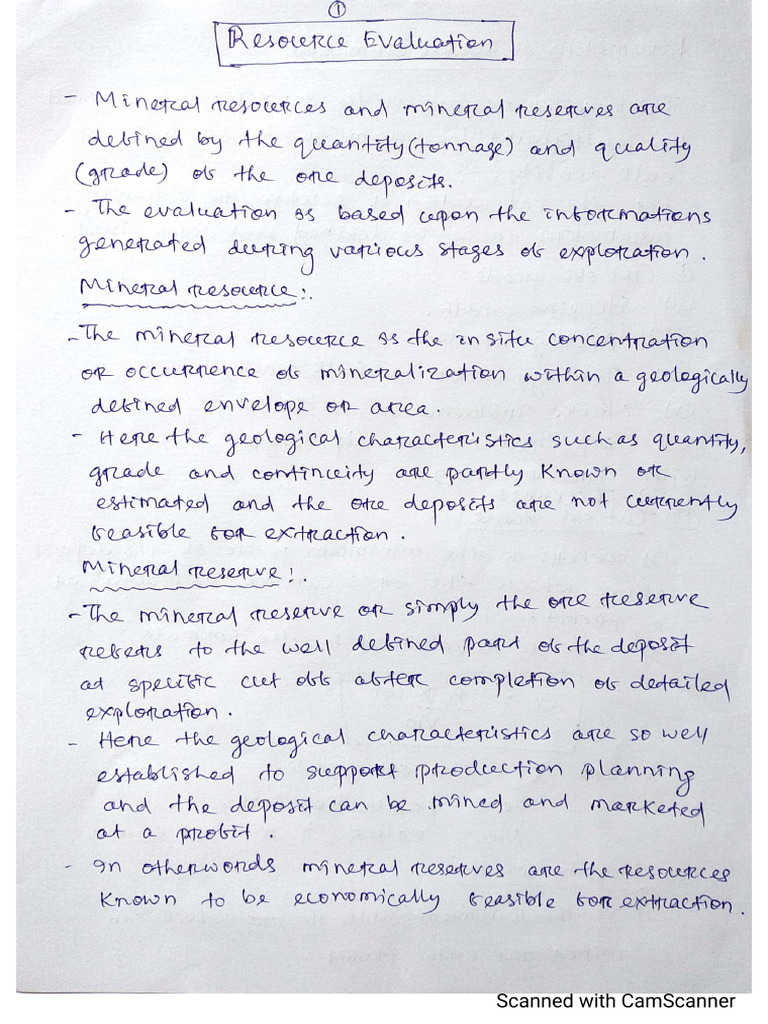 ①
Resource Evaluation
- Mineral resources and mineral reserves are
defined by the quantity (tonnage) and quality
(grade) of the ore deposits.
- The evaluation is based upon the informations
generated during various stages of exploration.
Mineral resource:.
- The mineral resource is the in situ concentration
or occurrence of mineralization within a geologically
defined envelope or area.
- Here the geological characteristics such as quantity,
grade and continceity are partly known or
estimated and the ore deposits are not currently
feasible for extraction.
Mineral reserve:.
- The mineral reserve or simply the ore reserve
refers to the well defined part of the deposit
at specific cut off after completion of detailed
exploration.
- Here the geological characteristics are so well
established to support production planning
and the deposit can be mined and marketed
at a profit.
- In otherwords mineral reserves are the resources
known to be economically feasible for extraction.
Scanned with CamScanner